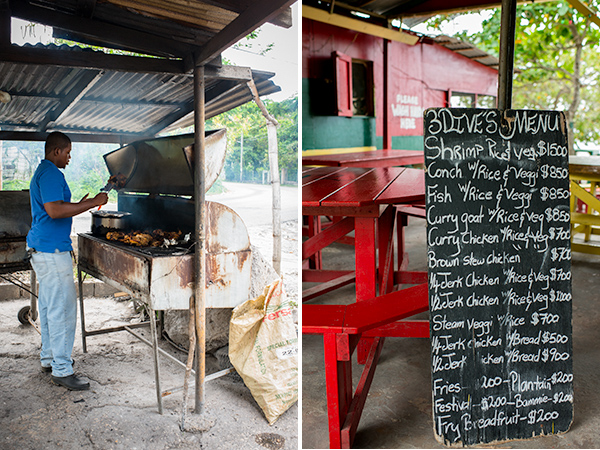 PLEASE
WASH YOUR
HANDS
3 DIVE'S MENU
Shrimp Rice veg $1500
Conch W/Rice & Veggi $850
Fish W/Rice & Veggi $850
Curry goat W/Rice & Veg $850
Curry Chicken W/Rice & Veg $700
Brown Stew Chicken $700
1/4 Jerk Chicken W/Rice & Veg $700
1/2 Jerk Chicken W/Rice & Veg $1200
Steam Veggi W/Rice $700
1/4 Jerk Chicken W/Bread $500
1/2 Jerk Chicken W/Bread $900
Fries - $200 - Plantain $200
Festival - $200 - Bammie - $200
Fry Breadfruit - $200